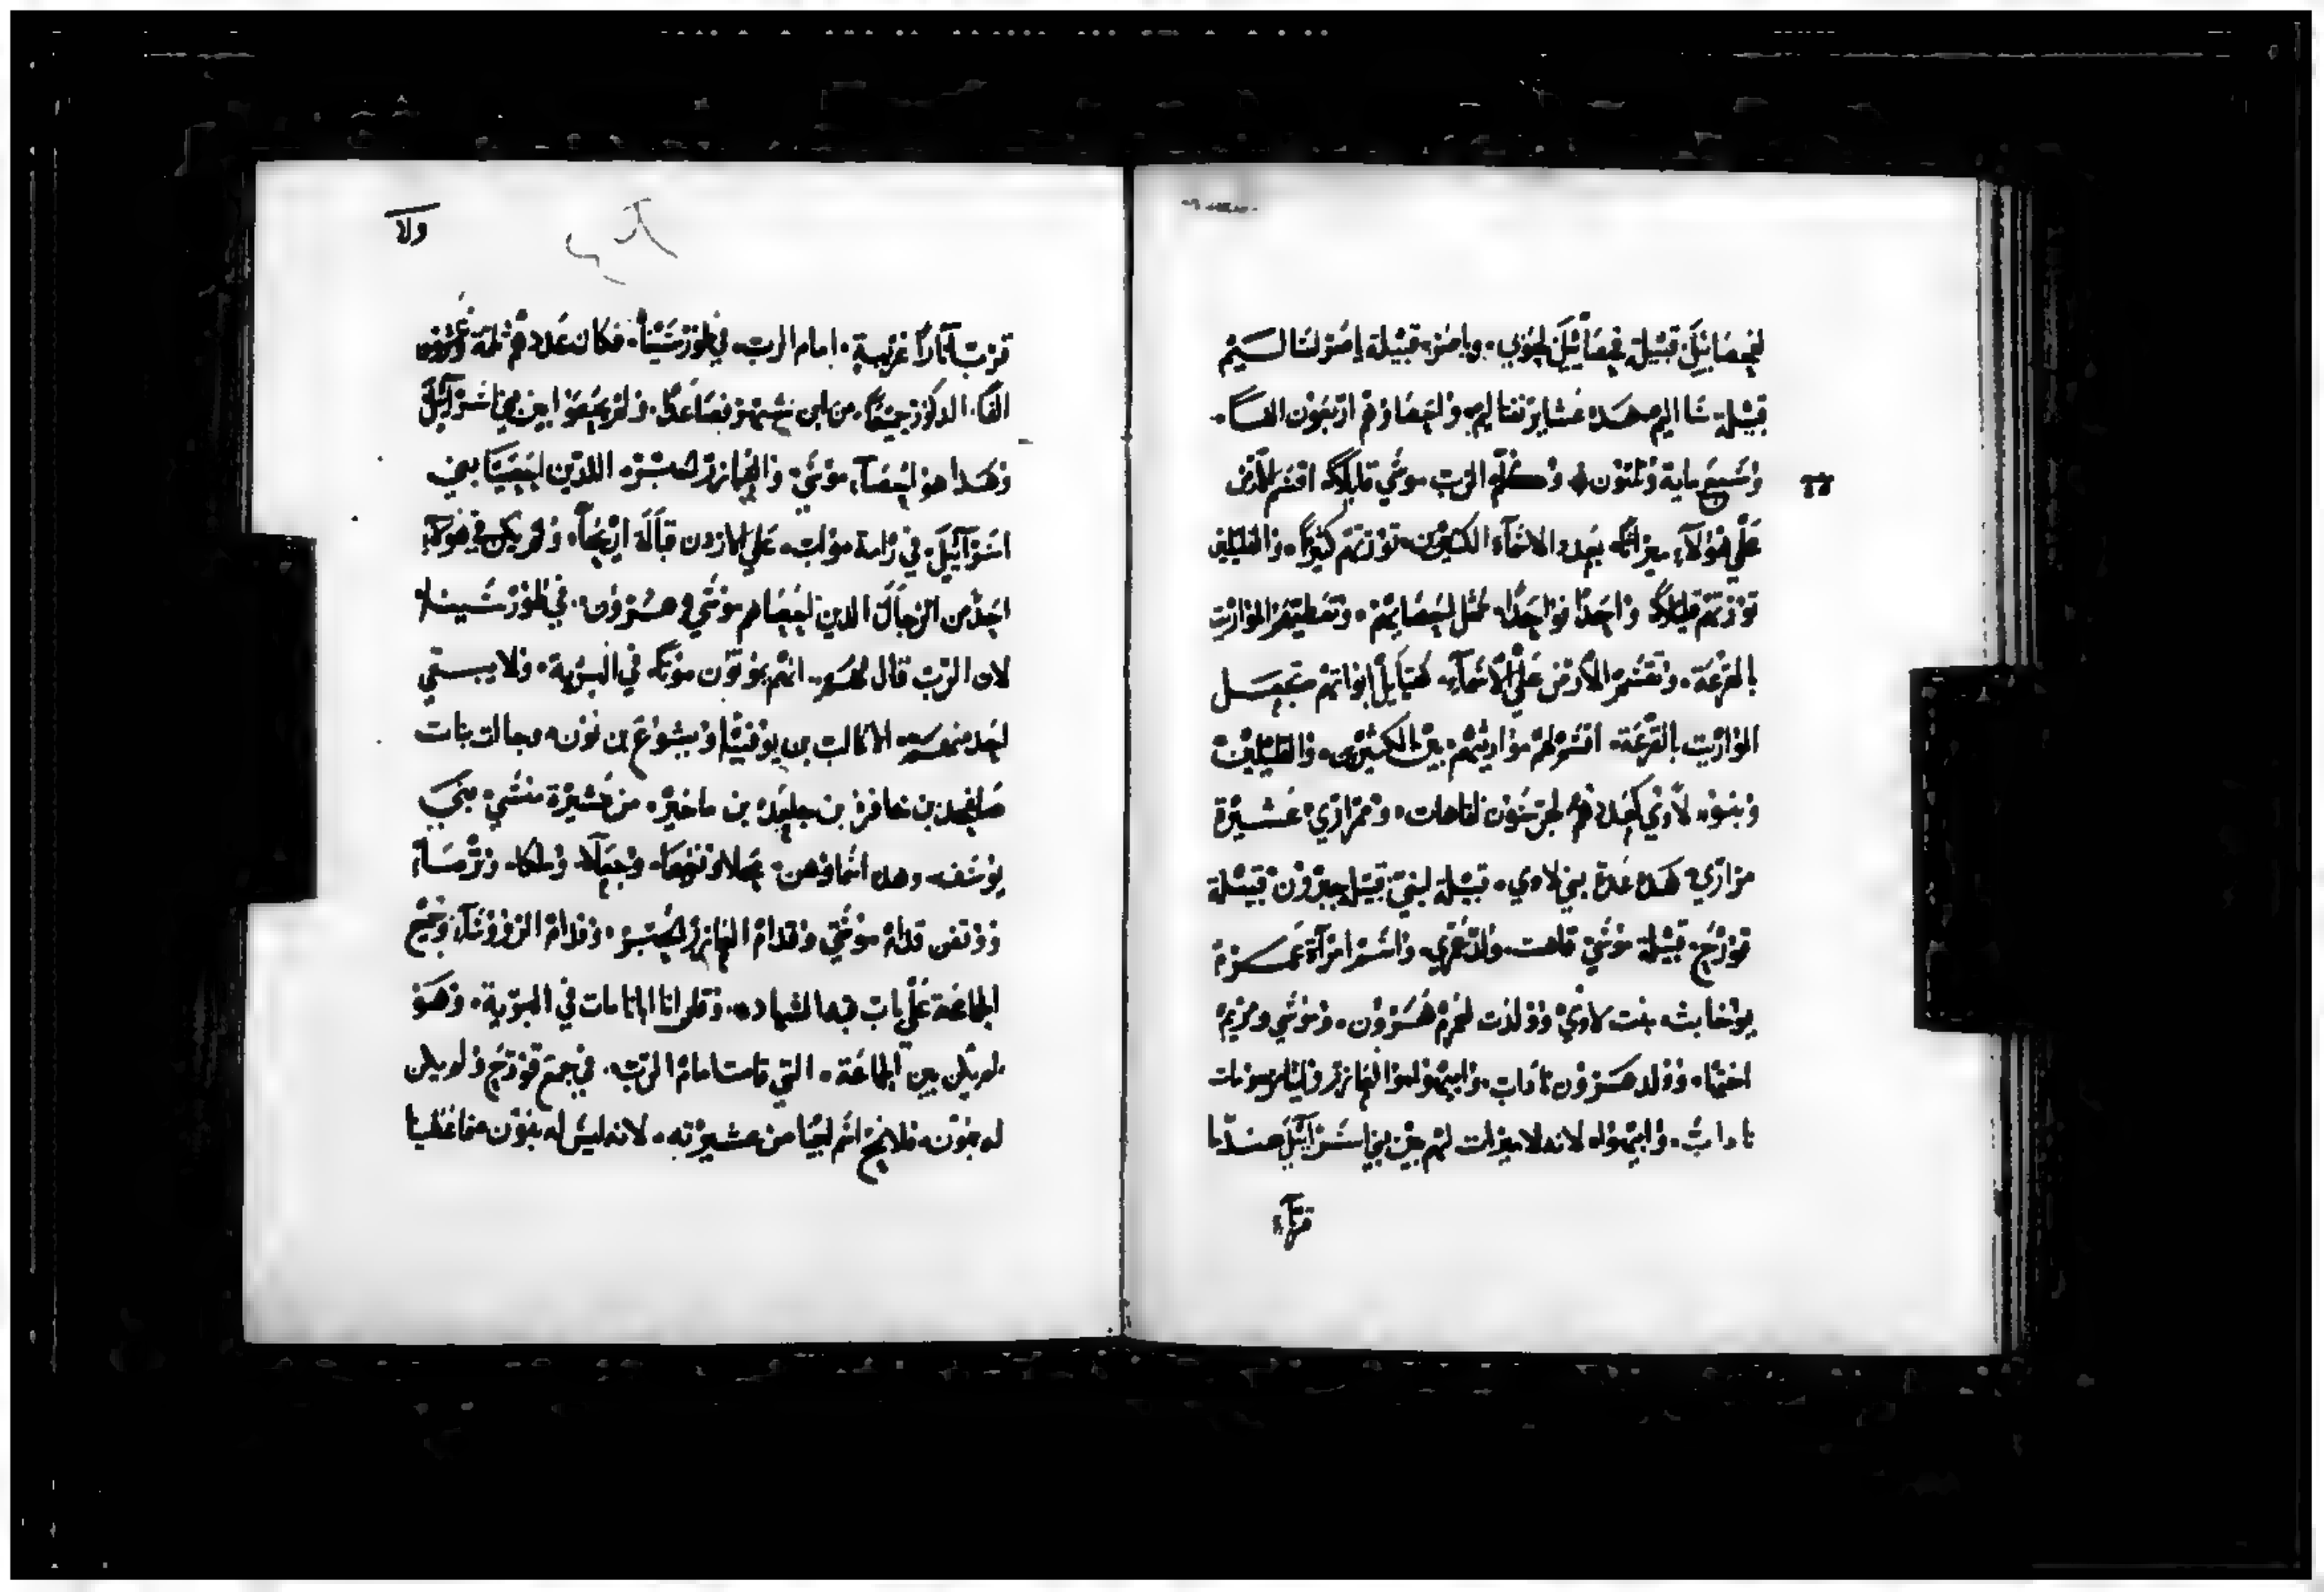 لنحصائيل قبيلة نحصائيل لجوني. وياصر قبيلة ياصر لشالسيم
قبيلة شاليم هده عشاير نفتاليم واحصاوهم اربعون الفا.
وسبع ماية وثلثون وكلم الرب موسي قايلا اقسم الارض
علي هولاء ميراثا بعدد الاسماء الكثيرين تورثهم كثيرا. والقليلين
تورثهم قليلا واحدا فواحدا مثل احصايهم. وتعطيهم المواريث
بالقرعة. وتقسم الارض علي الاسماء كقبايل ابواتهم تجعل
المواريث بالقرعة. اقسم لهم مواريثهم بين الكثيرين. والقليلين
وبنو لاوي كعددهم لجرشون لقاهات. ومراري عشيرة
مراري. هده عدة بني لاوي. قبيلة لبني قبيل حبرون قبيلة
قورح. قبيلة موشي قاهت. ولد عمري. واسم امراة عمرم
يوخابث بنت لاوي وولدت لعمرم هرون. وموسي ومريم
اختهما. وولد هرون ناداب. وابيهو لعوا العازر وايثامر ومات
ناداب. وابيهو لانه لا ميراث لهم بين بني اسرائيل عندما
قربا
ولا
قربا نارا غريبة. امام الرب في طور سينا. فكان عددهم ثلثة وعشرين
الفا. الدكور جميعا من ابن شهر فصاعدا. ولم يحصوا بين بني اسرائيل
وهدا هو احصاء موسي والعازر الحبر. اللدين احصيا بني
اسرائيل في رامة موات. علي الاردن قبالة اريحا. ولم يكن في هولاء
احد من الرجال الدين احصاهم موسي وهرون. في طور سينا
لان الرب قال لهم. انهم يموتون موتا في البرية. ولا يبقي
احد منهم. الا كالب بن يوفنيا ويشوع بن نون. وجاات بنات
صلفحد بن حافر بن جلعد بن ماخير. من عشيرة منسي بني
يوسف. وهده اسماوهن. محلا ونوعا. وحجلا. وملكا. وترصا.
ووقفن قدام موسي وقدام العازر الحبر. وقدام الروسا. وجميع
الجماعة علي باب قبة الشهاده. وقلن ان ابانا مات في البرية. وهو
لم يكن بين الجماعة. التي قامت امام الرب. في جمع قورح ولم يكن
له بنون. فلا يمح اسم ابينا من عشيرته. لانه ليس له بنون فاعطينا